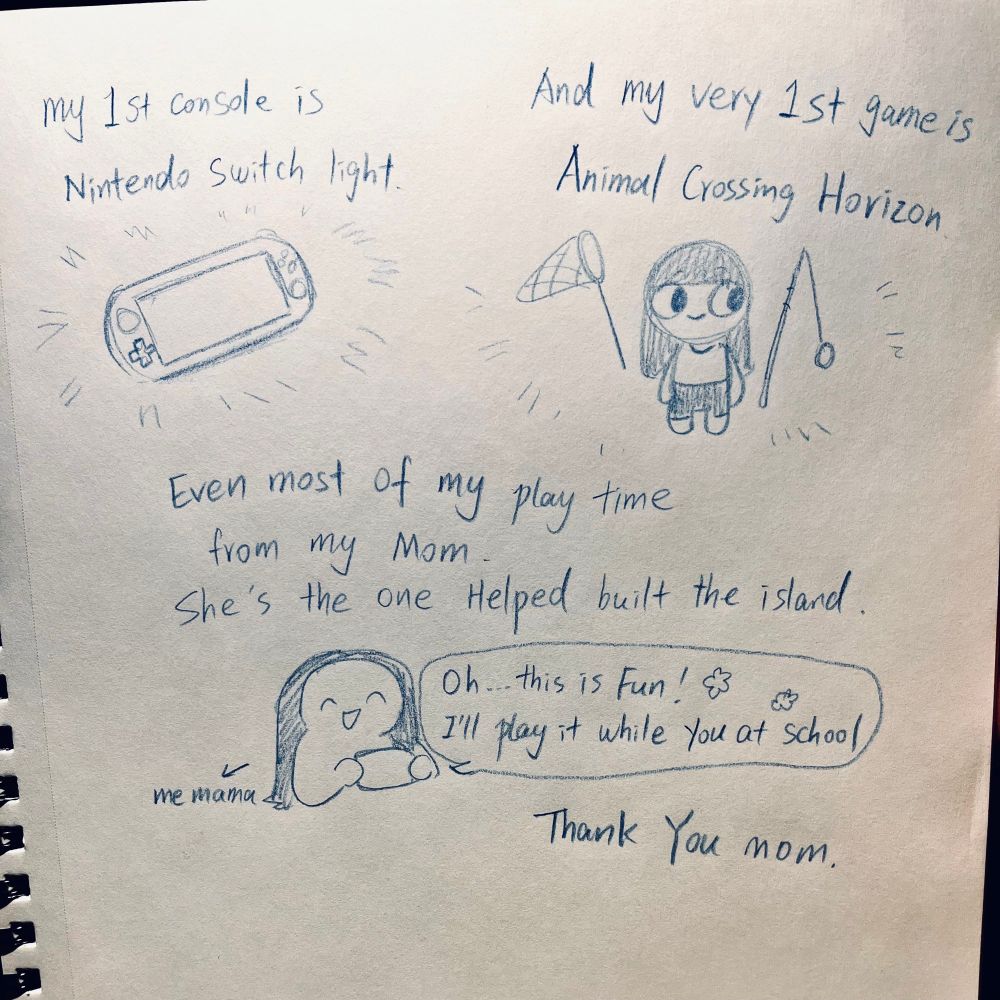 my 1st console is
Nintendo Switch light.
And my very 1st game is
Animal Crossing Horizon
Even most of my play time
from my Mom.
She's the one Helped built the island.
Oh...this is Fun!
I'll play it while you at school
me mama
Thank You mom.